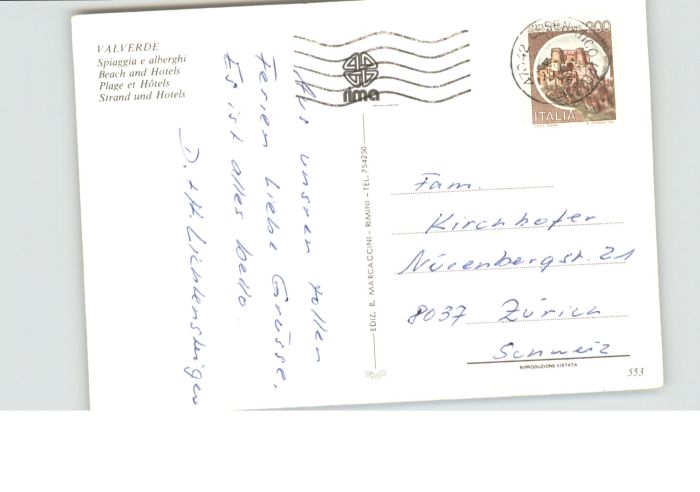 VALVERDE
Spiaggia e alberghi
Beach and Hotels
Plage et Hôtels
Strand und Hotels
Aus unsren tollen
Ferien liebe Grüsse.
Es ist alles bello.
D. + H. Lichtensteiger
EDIZ. B. MARCACCINI - RIMINI - TEL. 754250
rima
200
ITALIA
Fam.
Kirchhofer
Nürenbergst. 21
8037 Zürich
Schweiz
RIPRODUZIONE VIETATA
553